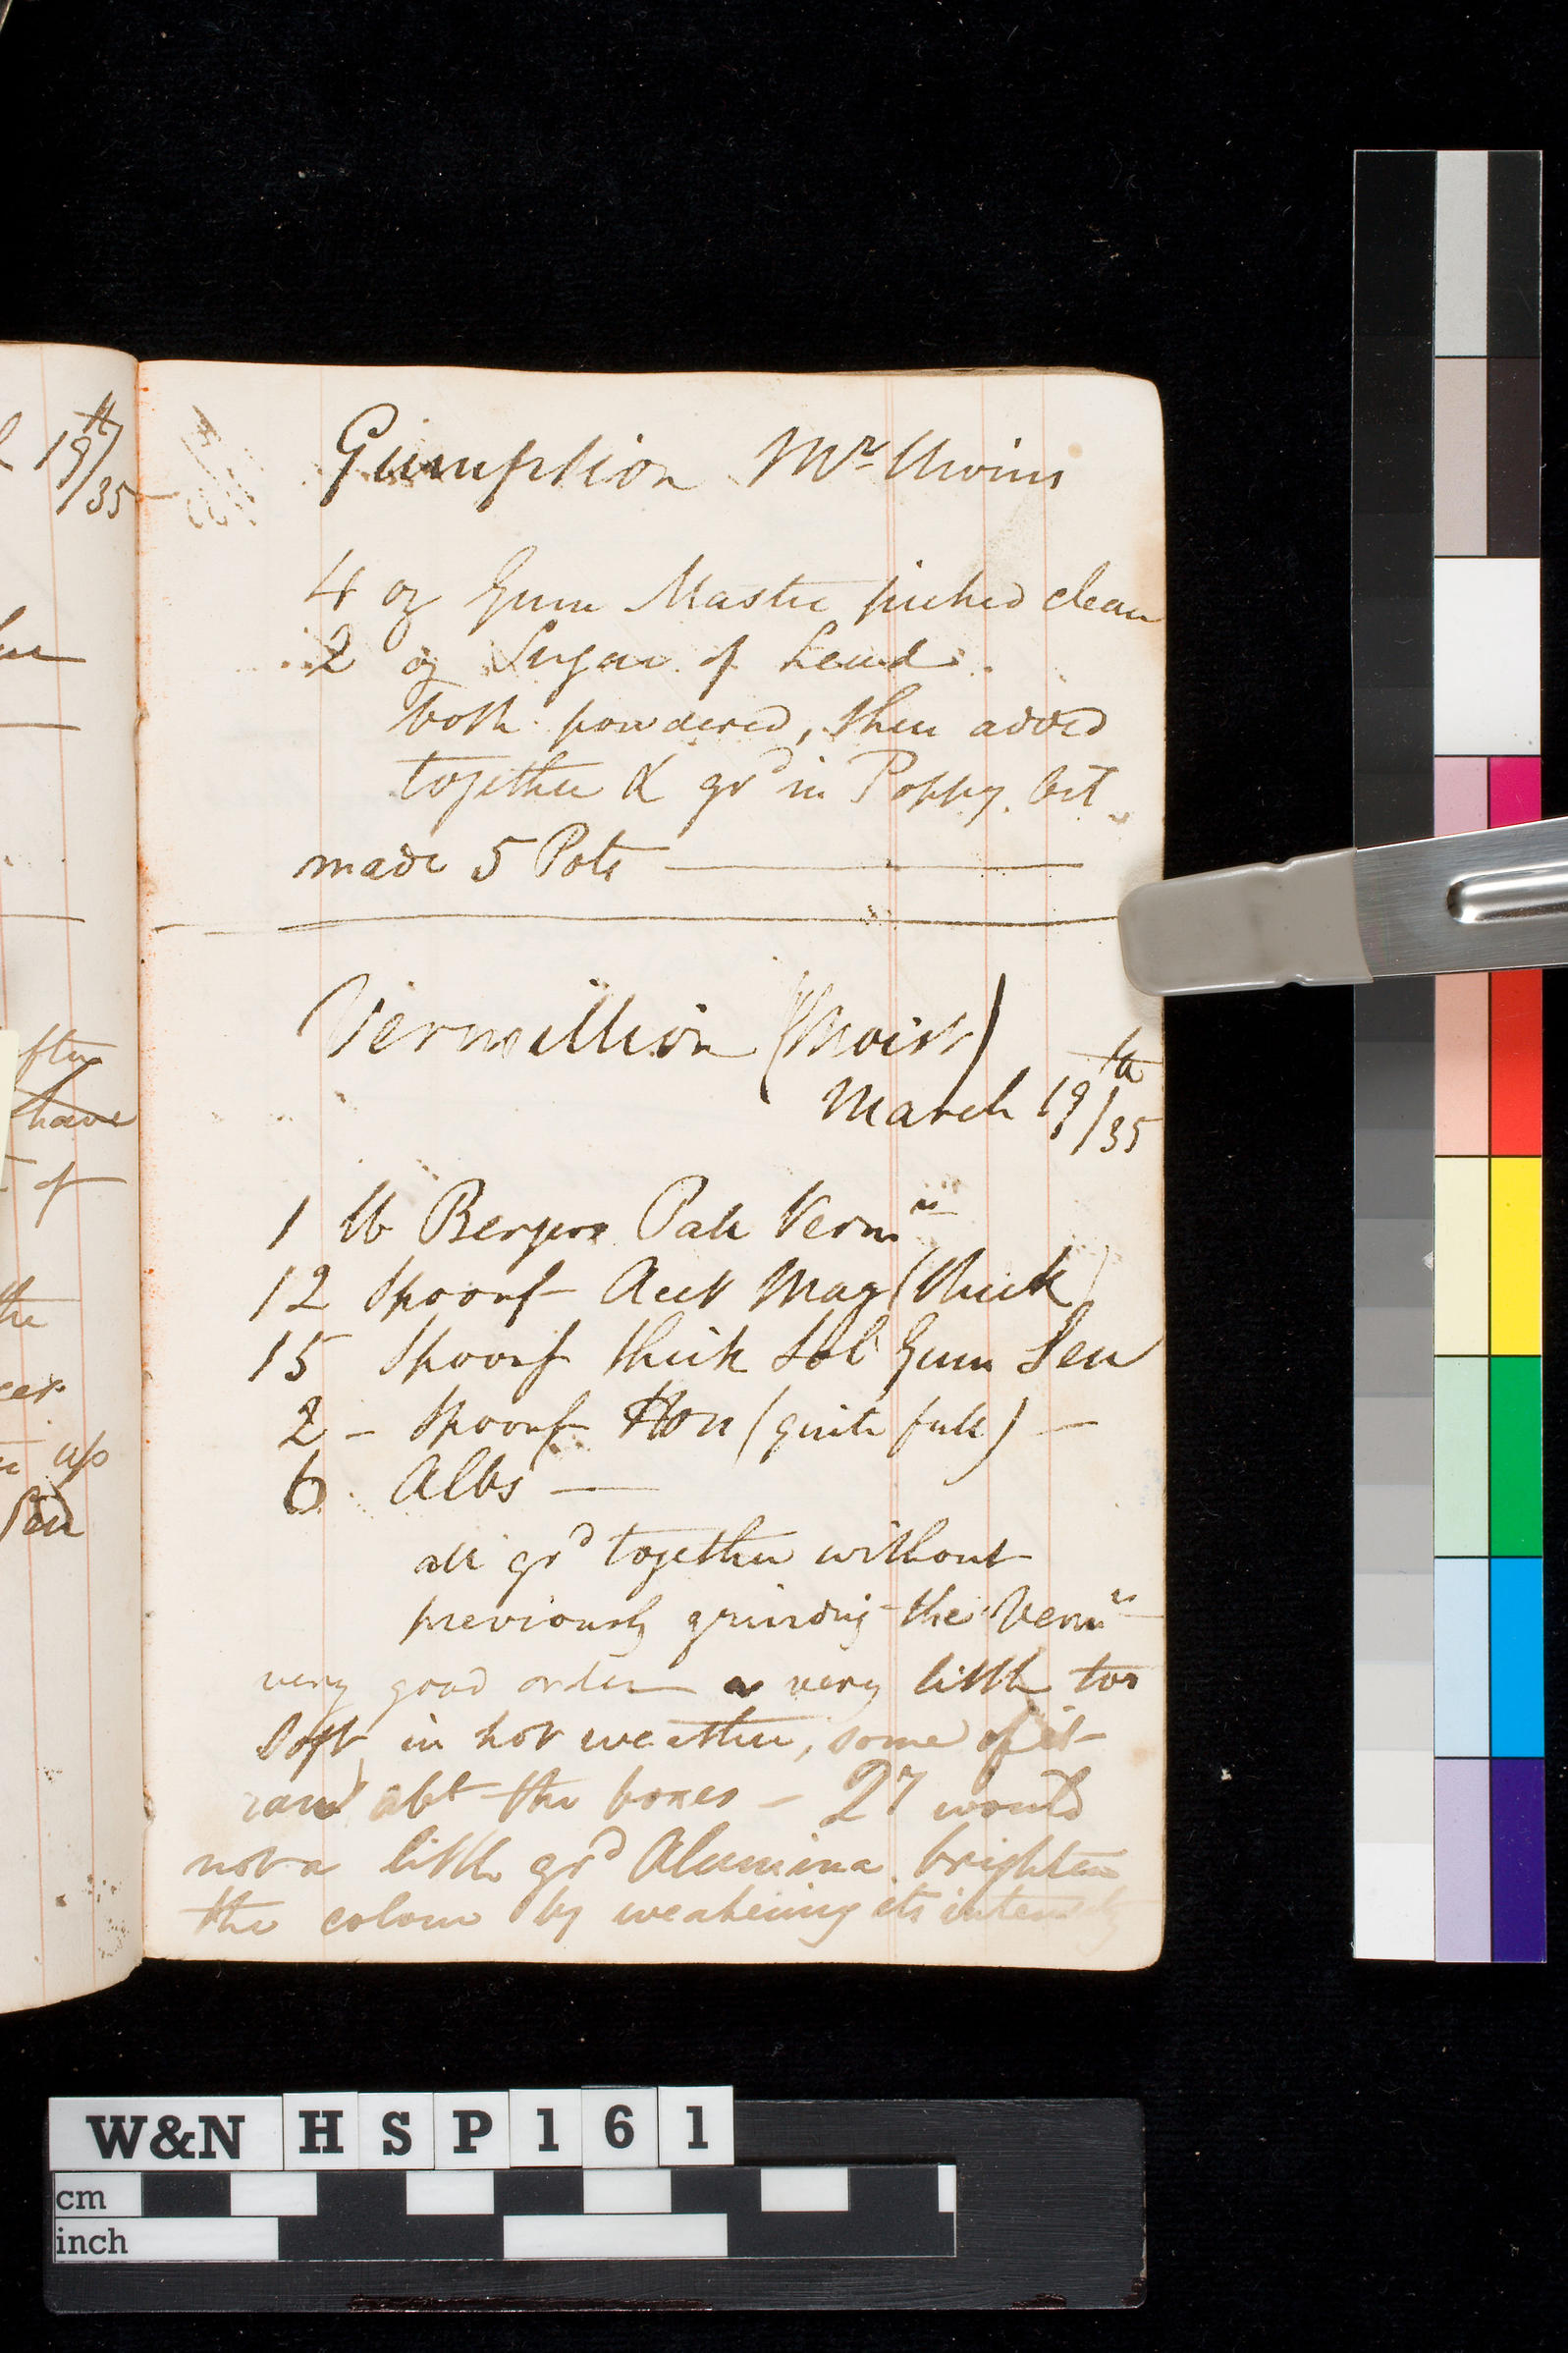 19th/35
Gumption Mr Uwins
4 oz Gum Mastic picked clean
2 oz Sugar of Lead
both powdered, then added
together & grd in Poppy.
made 5 Pots
Vermillion (Moist)
March 19th/35
1 lb Bergers Pale Vermn
12 Spoonf Acet Mag (thick)
15 Spoonf thick Sol Gum Sen
2 - Spoonf Hon (quite full) -
6 Albs
all grd together without
previously grinding the Vermn
very good order a very little too
soft in hot weather, some of it
ran abt the boxes - would
not a little grd Alumina brighten
the colour by weakening its intensity
have
of
the
up
W&N HSP161
cm
inch